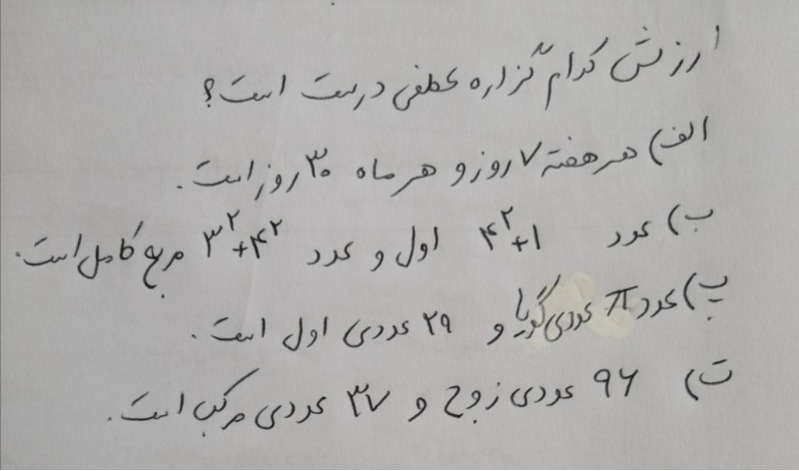 ارزش کدام گزاره عطفی درست است؟
الف) هر هفته ۷ روز و هر ماه ۳۰ روز است.
ب) عدد ۴²+۱ اول و عدد ۳²+۴² مربع کامل است.
پ) عدد π عددی گویا و ۲۹ عددی اول است.
ت) ۹۶ عددی زوج و ۳۷ عددی مرکب است.